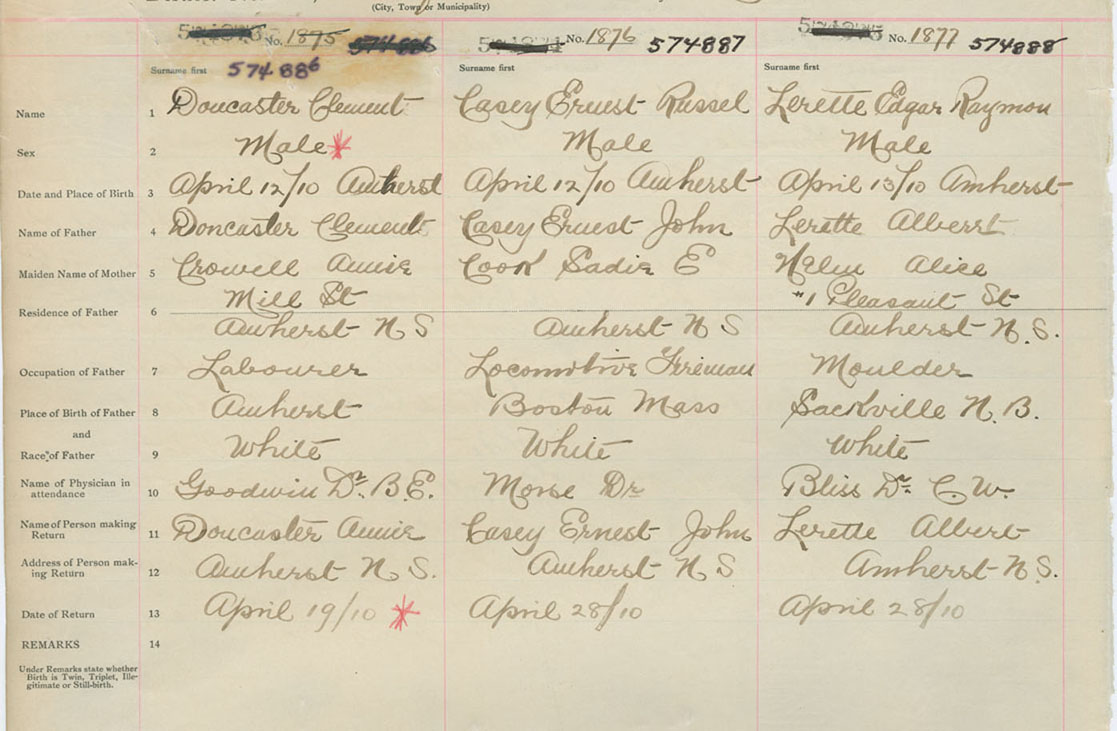 (City, Town or Municipality)
No. 1875 574886 No. 1876 574887 No. 1877 574888
Surname first 574886 Surname first Surname first
Name 1 Doncaster Clement Casey Ernest Russel Lerette Edgar Raymon
Sex 2 Male Male Male
Date and Place of Birth 3 April 12/10 Amherst April 12/10 Amherst April 13/10 Amherst
Name of Father 4 Doncaster Clement Casey Ernest John Lerette Alberrt
Maiden Name of Mother 5 Crowell Annie Cook Sadie E Alice
Mill St #1 Pleasant St
Residence of Father 6
Amherst N S Amherst N S Amherst N.S.
Occupation of Father 7 Labourer Locomotive Fireman Moulder
Place of Birth of Father 8 Amherst Boston Mass Sackville N.B.
and
Race of Father 9 White White White
Name of Physician in
attendance 10 Goodwin Dr. B.E. Morse Dr Bliss Dr. C.W.
Name of Person making
Return 11 Doncaster Annie Casey Ernest John Lerette Albert
Address of Person mak-
ing Return 12 Amherst N S. Amherst N S Amherst N.S.
Date of Return 13 April 19/10 April 28/10 April 28/10
REMARKS 14
Under Remarks state whether
Birth is Twin, Triplet, Ille-
gitimate or Still-birth.